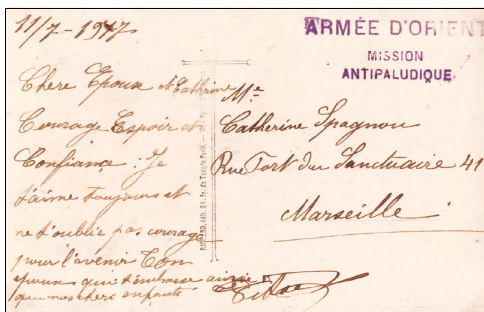 11/7 - 1917
ARMÉE D'ORIENT
MISSION
ANTIPALUDIQUE
Chere Epouse et Cathrine
Courage Espoir et
Confiance : Je
t'aime toujours et
ne t'oublie pas courage
pour l'avenir Ton
epoux qui t'embrasse ainsi
que nos chers enfants
Me
Catherine Spagnou
Rue Fort du Sanctuaire 41
Marseille